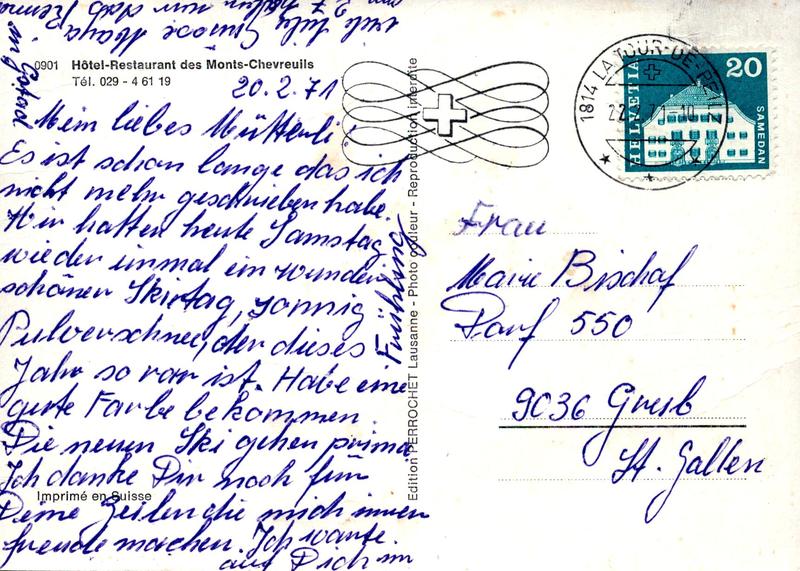 0901 Hôtel-Restaurant des Monts-Chevreuils
Tél. 029 - 4 61 19
20.2.71
Mein liebes Mütterli!
Es ist schon lange das ich
nicht mehr geschrieben habe.
Wir hatten heute Samstag
wieder einmal ein wunder
schönen Skitag, sonnig
Pulverschnee, der dieses
Jahr so rar ist. Habe eine
gute Farbe bekommen
Die neuen Ski gehen prima
Ich danke Dir noch für
Deine Zeilen die mich immer
freude machen. Ich warte
auf Dich im
Frühling
viele liebe Grüsse Maya
Imprimé en Suisse
Edition PERROCHET Lausanne - Photo couleur - Reproduction interdite
1814 LA TOUR-DE-PEILZ
HELVETIA
20
SAMEDAN
Frau
Marie Bischof
Dorf 550
9036 Grub
St. Gallen